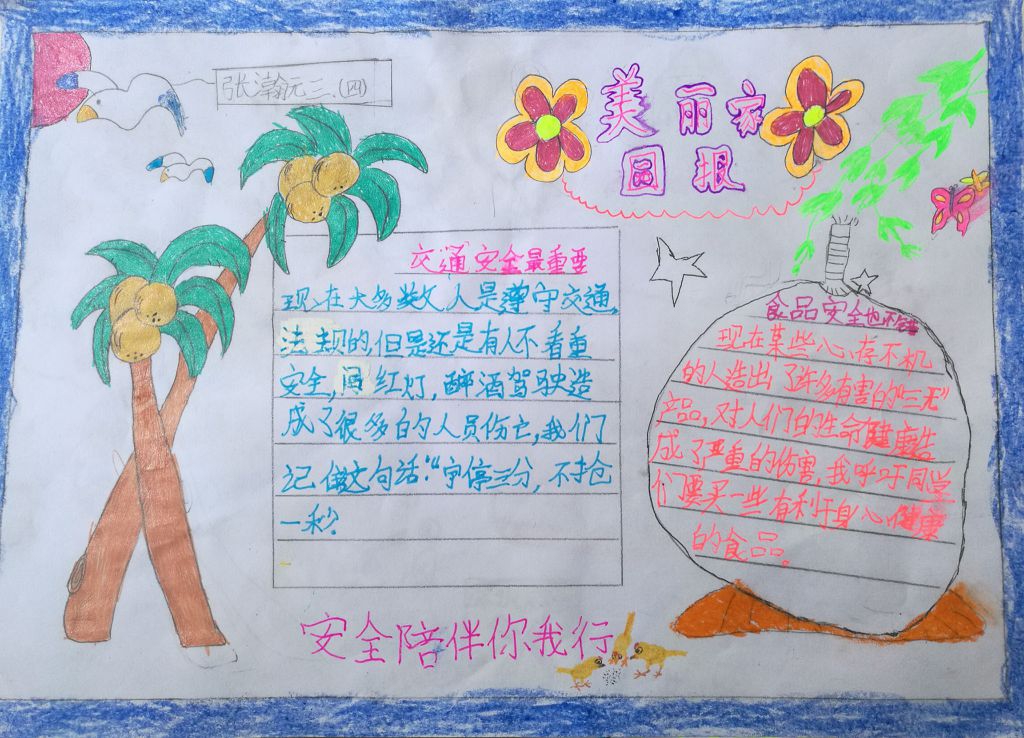 张瀚元三.(四)
美丽家
园报
交通安全最重要
现在大多数人是遵守交通
法规的但是还是有人不看重
安全,闯红灯,醉酒驾驶造
成了很多的人员伤亡,我们
记住这句话:"宁停三分,不抢
一秒?
食品安全也不
现在某些心存不机
的人造出了许多有害的"三无"
产品,对人们的生命健康造
成了严重的伤害,我呼吁同学
们要买一些有利于身心健康
的食品。
安全陪伴你我行